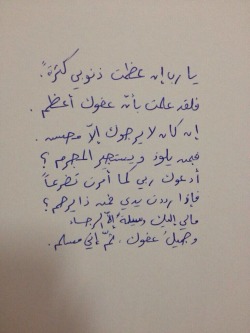 يا رب إن عظمت ذنوبي كثرةً.
فلقد علمت بأنّ عفوك أعظم.
إن كان لا يرجوك إلاّ محسن.
فبمن يلوذ ويستجير المجرم؟
أدعوك ربي كما أمرت تضرعاً
فإذا رددت يدي فمن ذا يرحم؟
مالي إليك وسيلةٌ إلاّ الرجاء
وجميلُ عفوك. ثمّ إني مسلم.